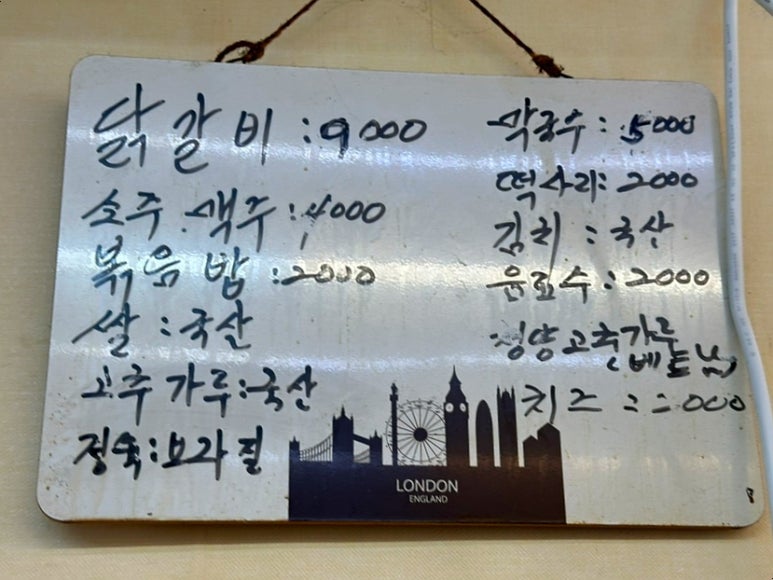 닭갈비 : 9000
소주.맥주 : 4000
볶음밥 : 2000
쌀 : 국산
고추가루 : 국산
정숙 : 보라질
막국수 : 5000
떡사리 : 2000
김치 : 국산
음료수 : 2000
청양고추가루
(베트남)
치즈 : 2000
LONDON
ENGLAND